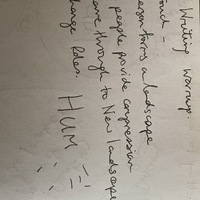 Writing warmup.
transforms a landscape
people provide compression
move through to New landscape
change Roles.
HUM